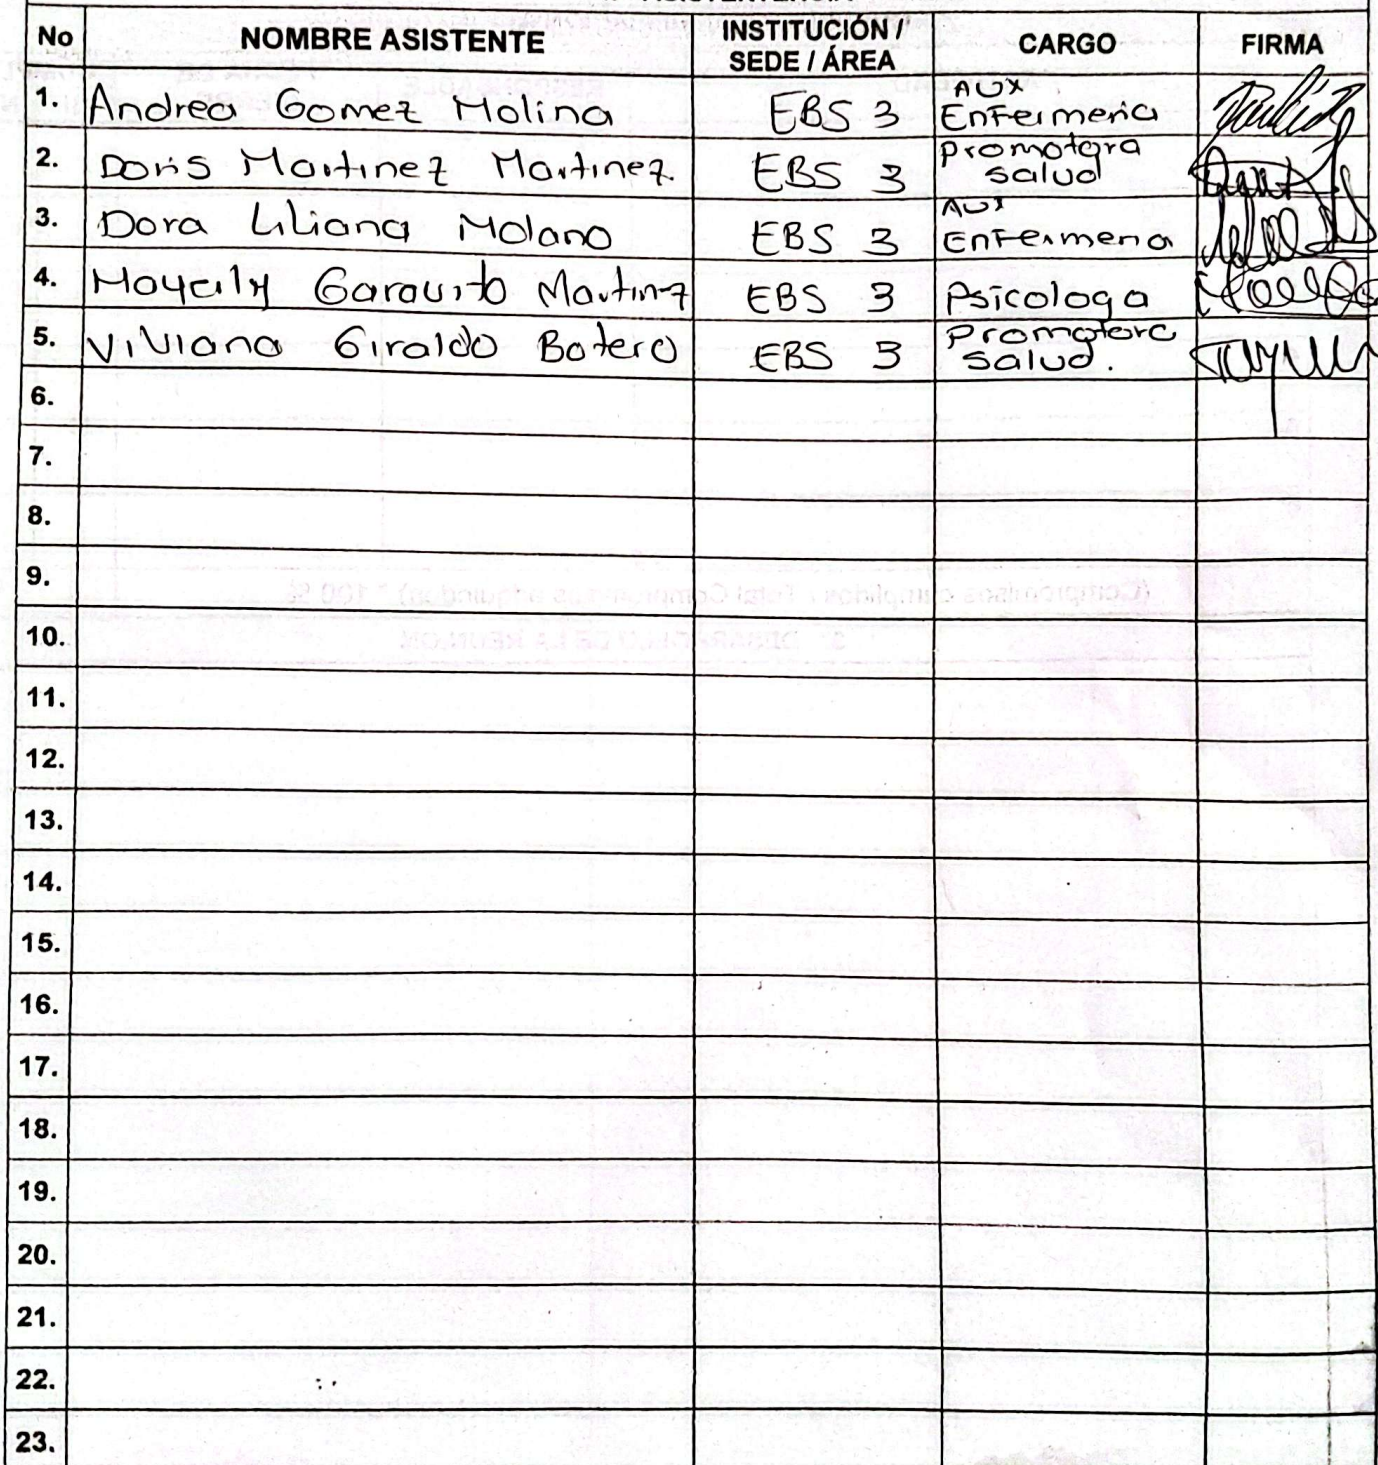 No NOMBRE ASISTENTE INSTITUCIÓN / SEDE / ÁREA CARGO FIRMA
1. Andrea Gomez Molina EBS 3 Aux Enfermeria
2. Doris Martinez Martinez. EBS 3 Promotora salud
3. Dora Liliana Molano EBS 3 Aux Enfermeria
4. Mayerly Garavito Martinez EBS 3 Psicologa
5. Viviana Giraldo Botero EBS 3 Promotora salud.
6.
7.
8.
9.
10.
11.
12.
13.
14.
15.
16.
17.
18.
19.
20.
21.
22.
23.